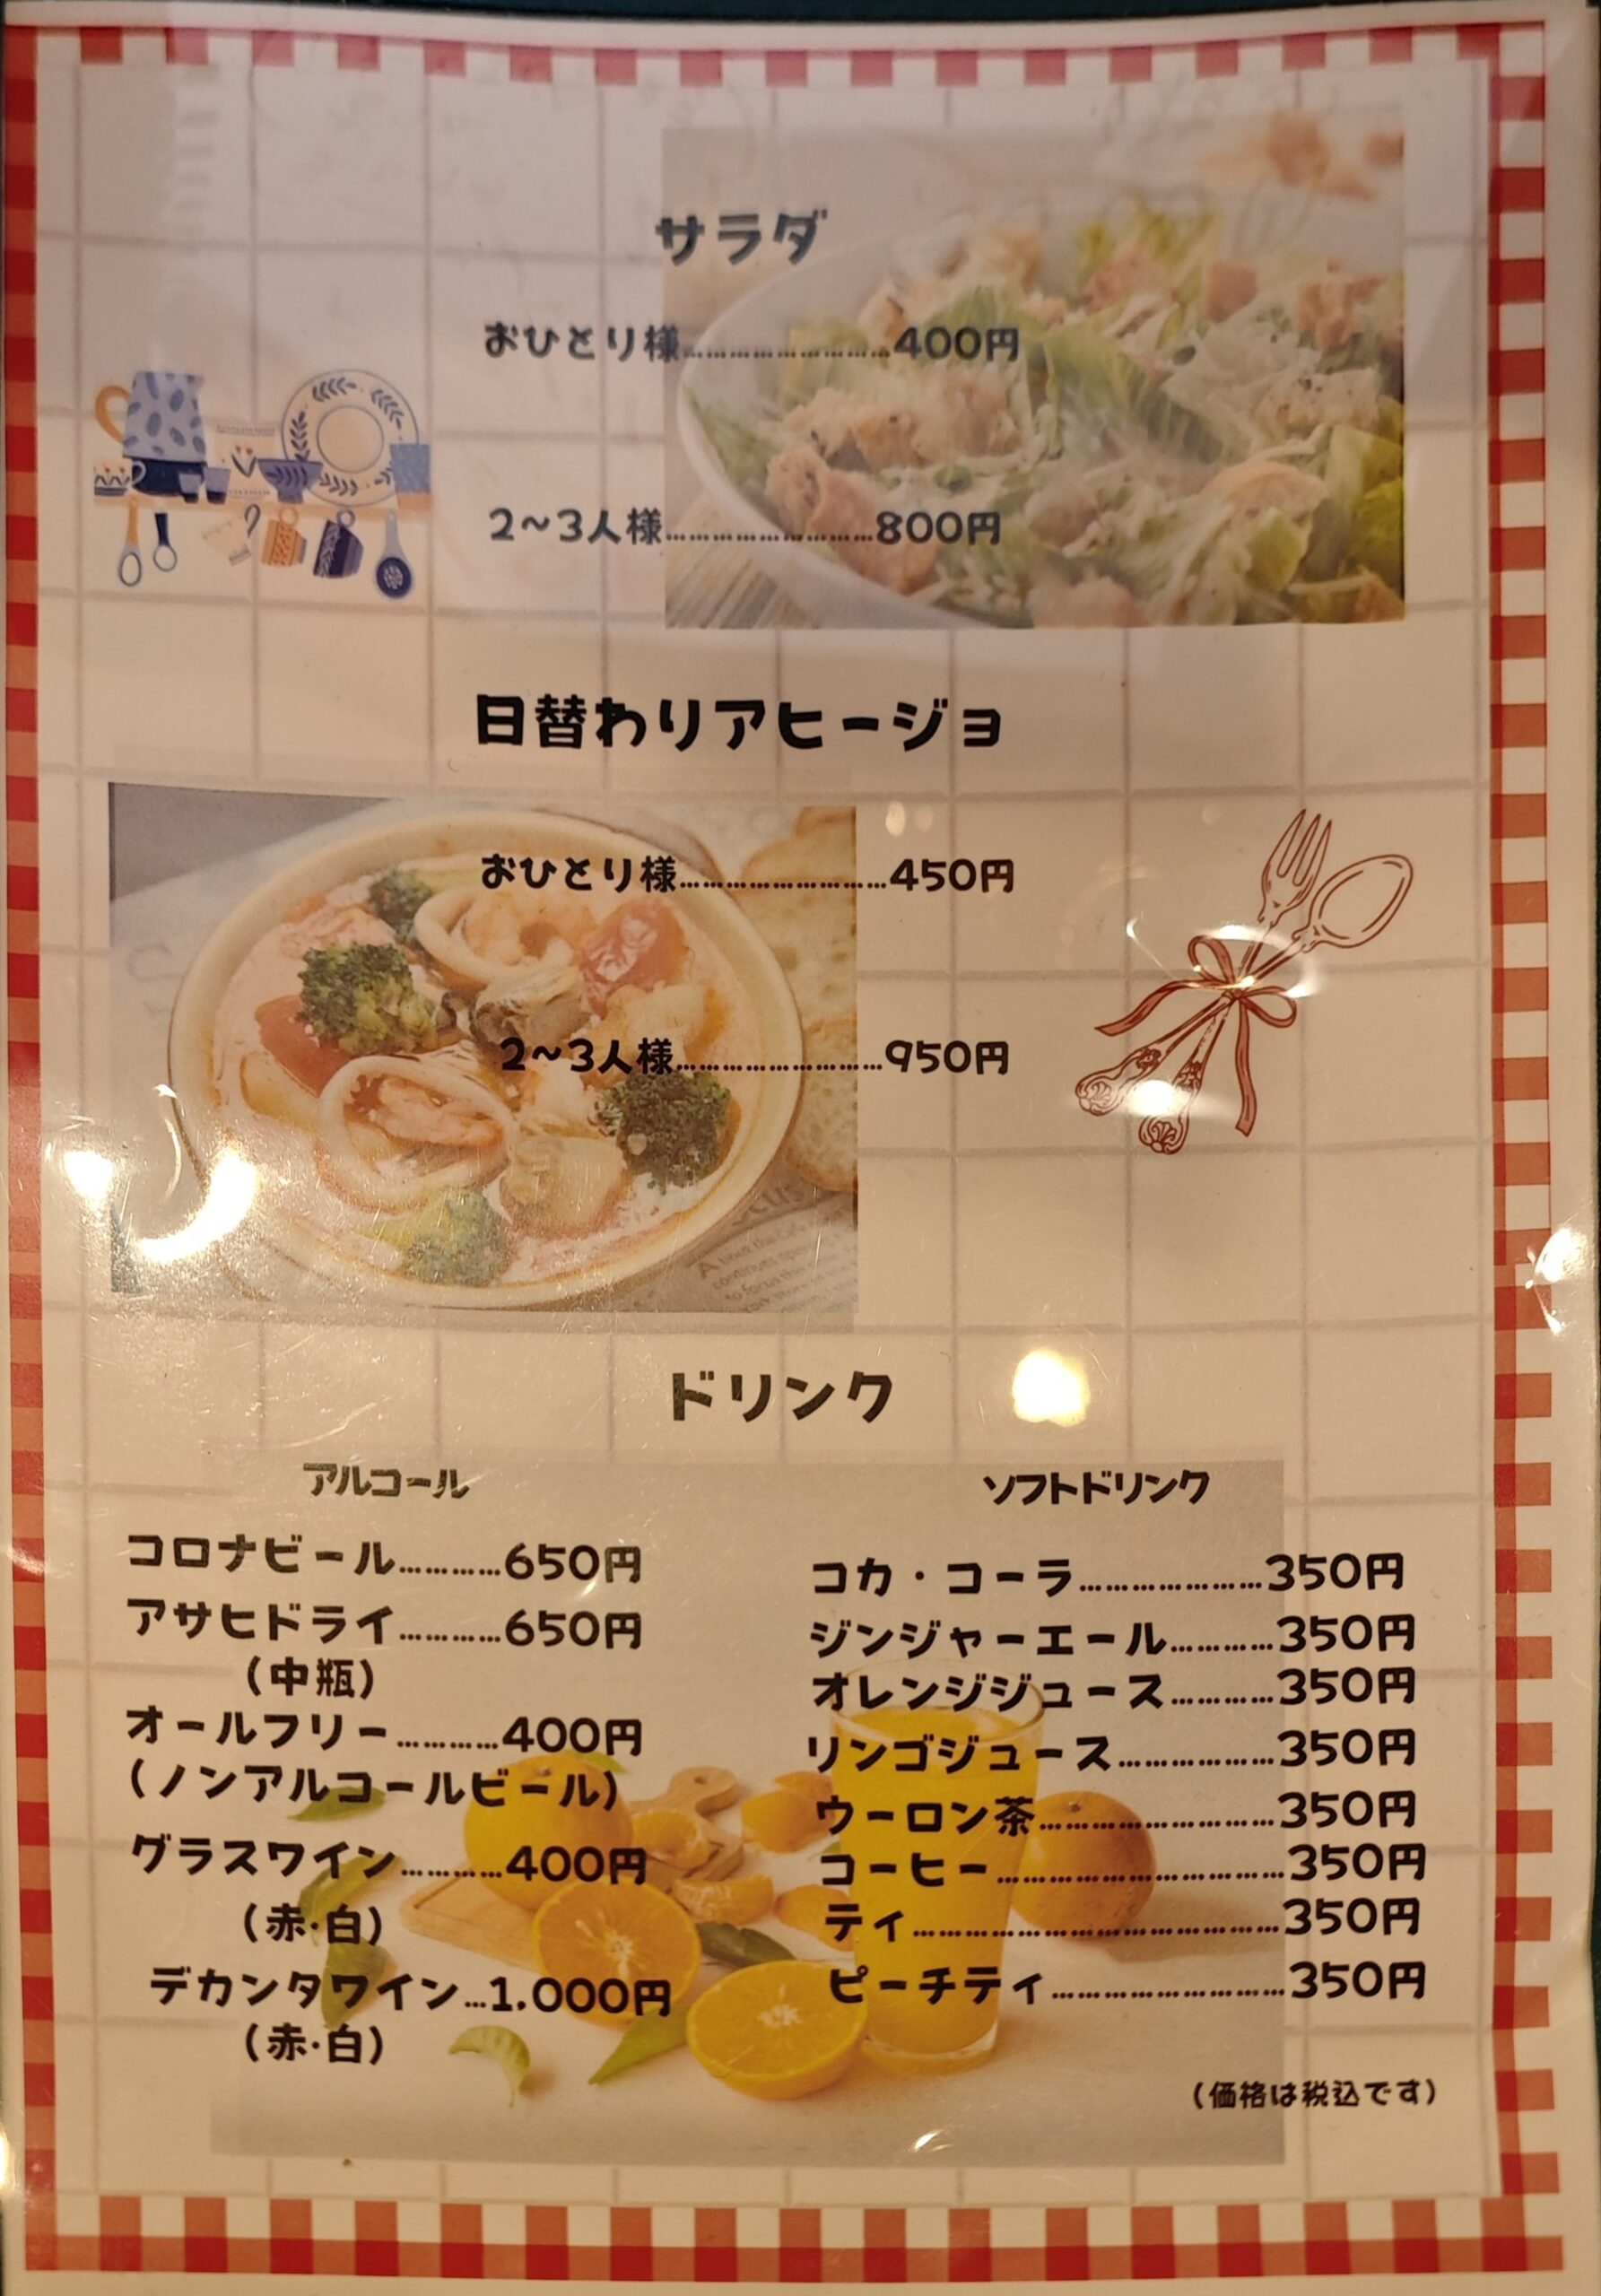 サラダ
おひとり様……………………400円
2~3人様……………………800円
日替わりアヒージョ
おひとり様……………………450円
2~3人様……………………950円
ドリンク
アルコール
コロナビール…………650円
アサヒドライ…………650円
(中瓶)
オールフリー…………400円
(ノンアルコールビール)
グラスワイン…………400円
(赤・白)
デカンタワイン…1.000円
(赤・白)
ソフトドリンク
コカ・コーラ…………………350円
ジンジャーエール…………350円
オレンジジュース…………350円
リンゴジュース………………350円
ウーロン茶………………………350円
コーヒー……………………………350円
ティ……………………………………350円
ピーチティ………………………350円
(価格は税込です)